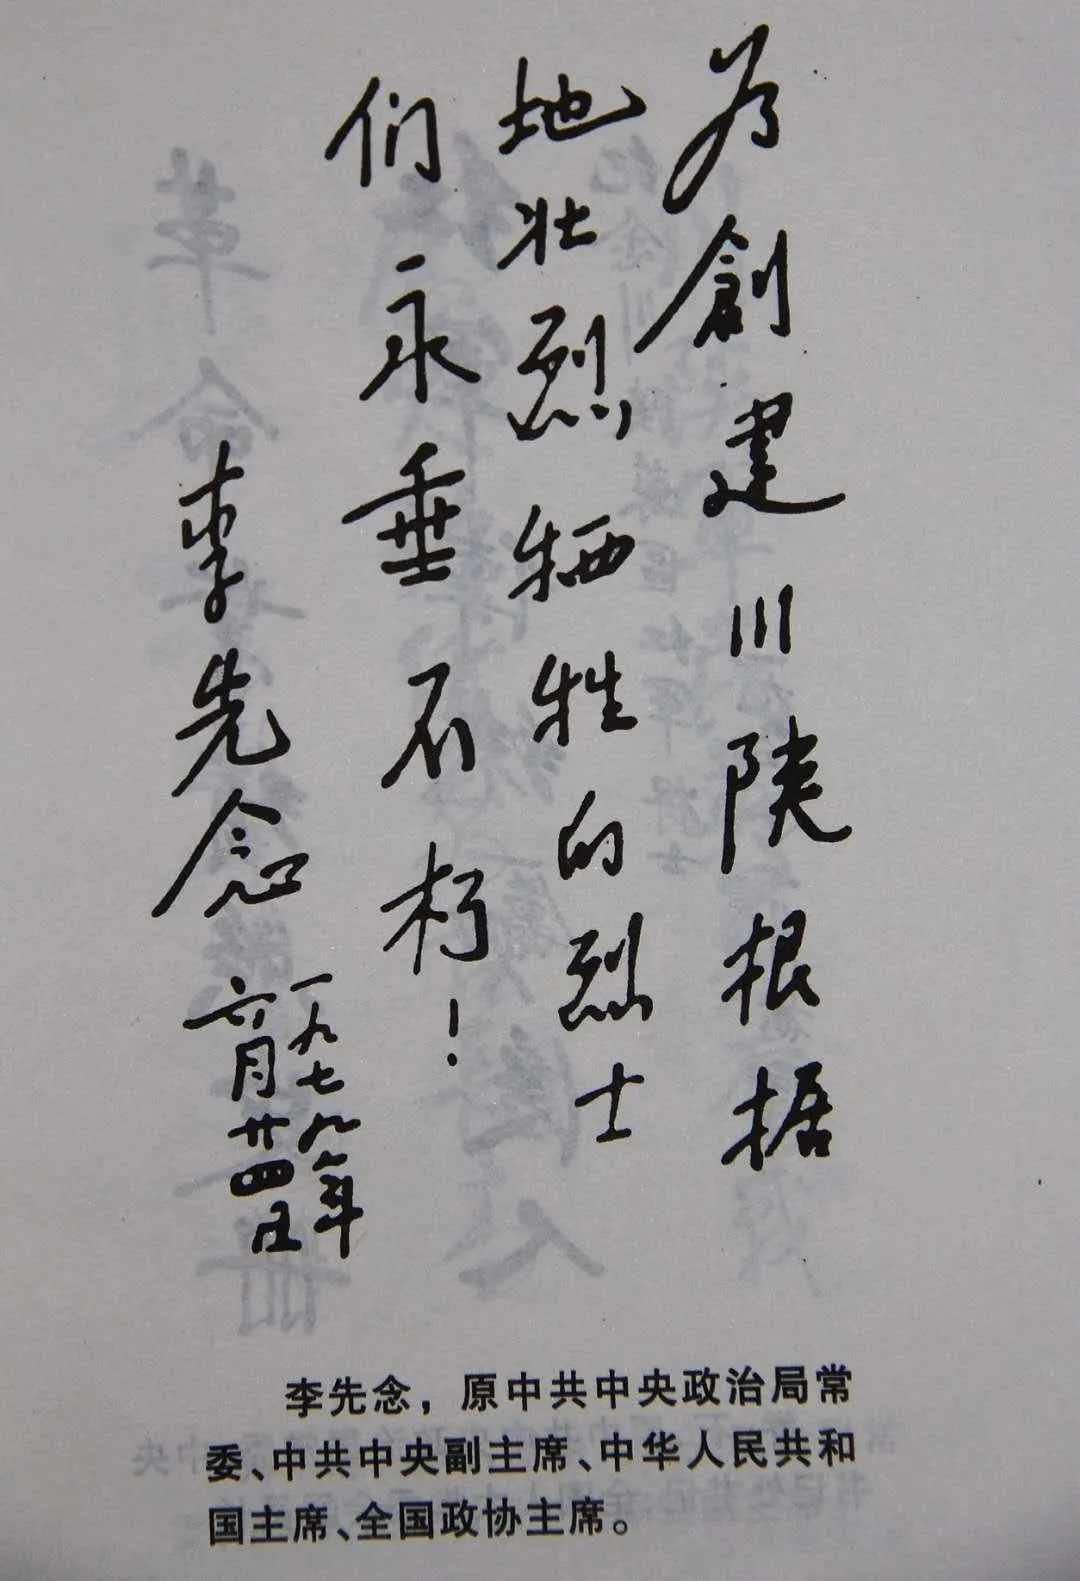 为創建川陕根据
地壮烈牺牲的烈士
们永垂不朽！
李先念
一九七九年
六月廿四日
李先念，原中共中央政治局常
委、中共中央副主席、中华人民共和
国主席、全国政协主席。